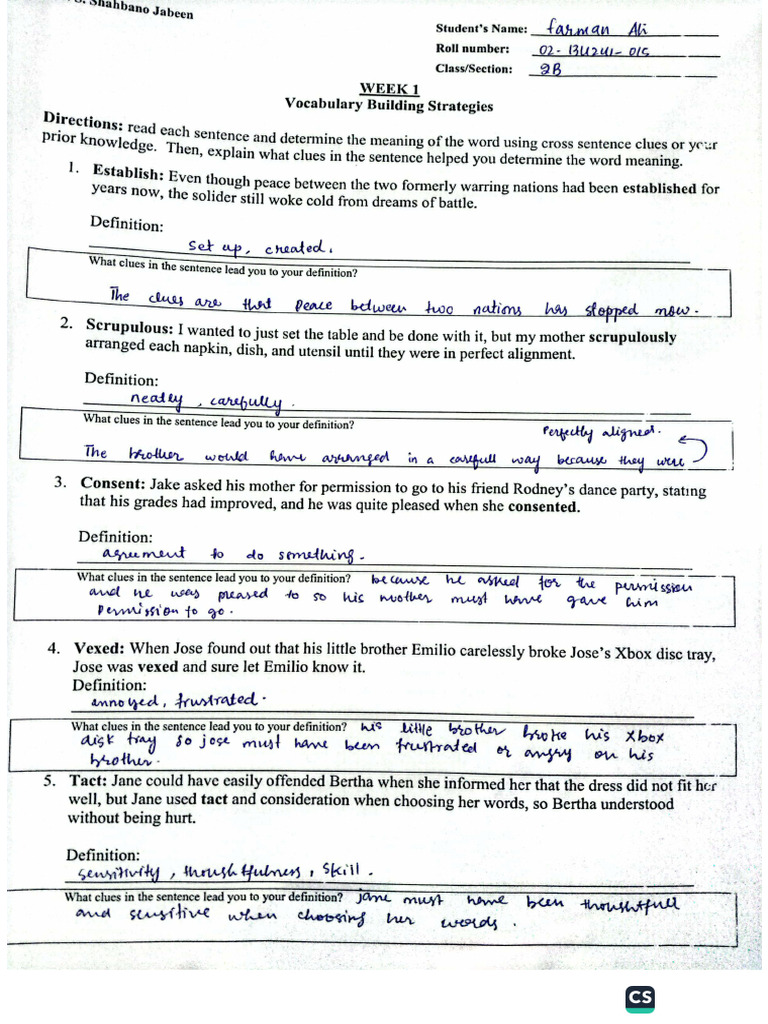 Shahbano Jabeen
Student's Name: Farman Ali
Roll number: 02-
Class/Section: 2B
WEEK 1
Vocabulary Building Strategies
Directions: read each sentence and determine the meaning of the word using cross sentence clues or your
prior knowledge. Then, explain what clues in the sentence helped you determine the word meaning.
1. Establish: Even though peace between the two formerly warring nations had been established for
years now, the solider still woke cold from dreams of battle.
Definition:
set up, created.
What clues in the sentence lead you to your definition?
The clues are that peace between two nations has stopped now.
2. Scrupulous: I wanted to just set the table and be done with it, but my mother scrupulously
arranged each napkin, dish, and utensil until they were in perfect alignment.
Definition:
neatly, carefully.
What clues in the sentence lead you to your definition?
The brother would have arranged in a carefull way because they were
Perfectly aligned.
3. Consent: Jake asked his mother for permission to go to his friend Rodney's dance party, stating
that his grades had improved, and he was quite pleased when she consented.
Definition:
agreement to do something.
What clues in the sentence lead you to your definition? because he asked for the permission
and he was pleased to so his mother must have gave him
permission to go.
4. Vexed: When Jose found out that his little brother Emilio carelessly broke Jose's Xbox disc tray,
Jose was vexed and sure let Emilio know it.
Definition:
annoyed, frustrated.
What clues in the sentence lead you to your definition? his little brother broke his Xbox
disk tray so jose must have been frustrated or angry on his
brother.
5. Tact: Jane could have easily offended Bertha when she informed her that the dress did not fit her
well, but Jane used tact and consideration when choosing her words, so Bertha understood
without being hurt.
Definition:
sensitivity, thoughtfulness, skill.
What clues in the sentence lead you to your definition? jane must have been thoughtfull
and sensitive when choosing her words.
CS